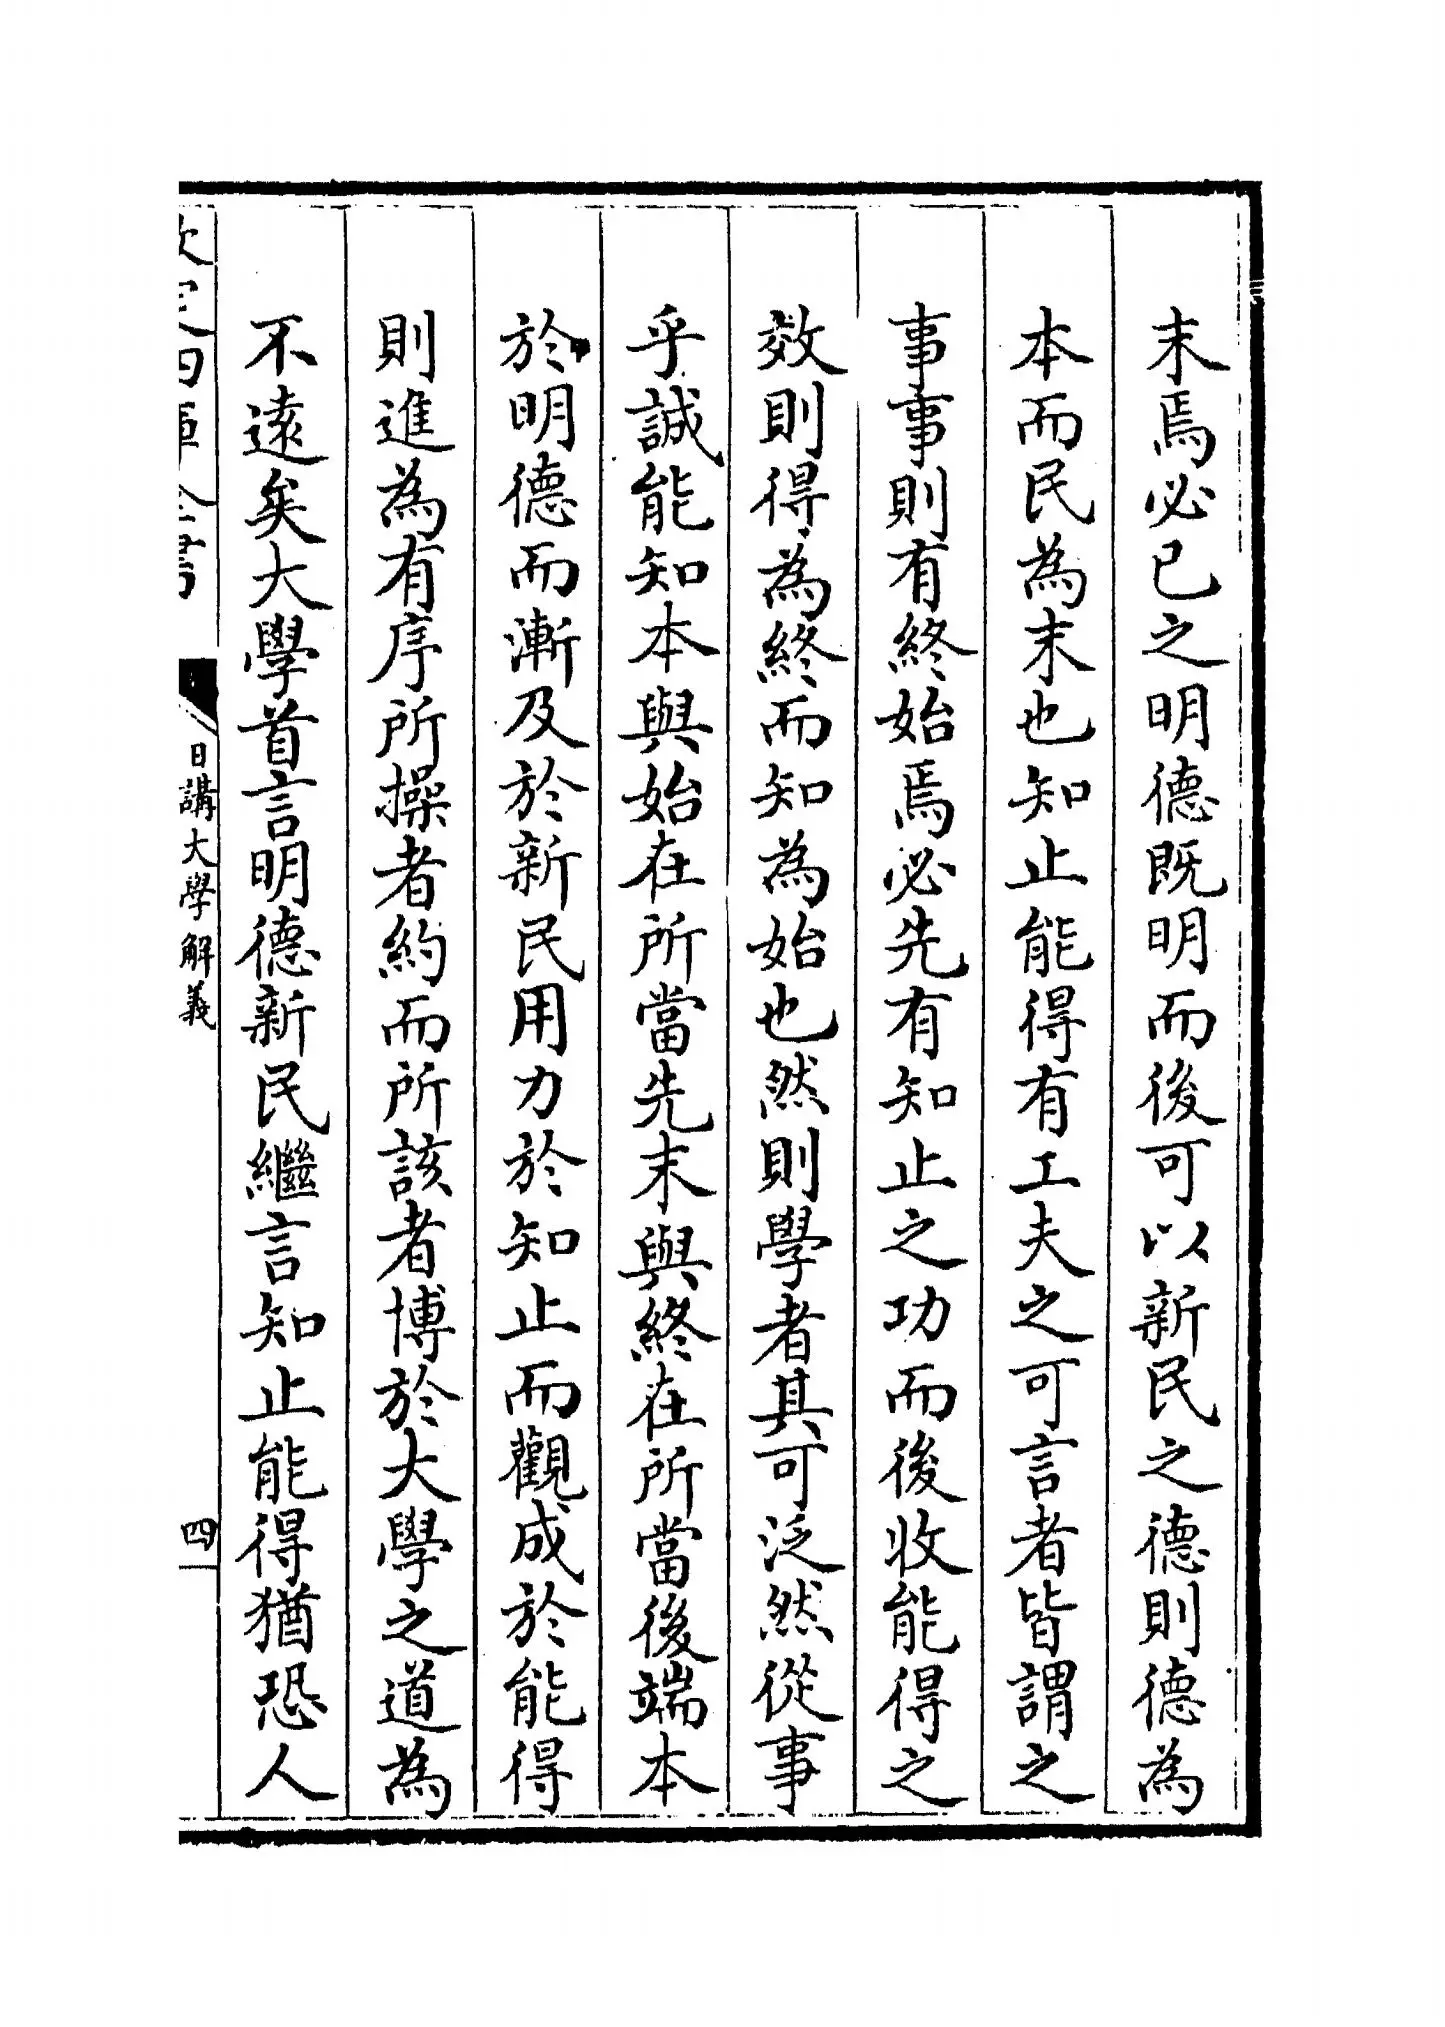 末焉必已之明德既明而後可以新民之德則德為
本而民為末也知止能得有工夫之可言者皆謂之
事事則有終始焉必先有知止之功而後收能得之
效則得為終而知為始也然則學者其可泛然從事
乎誠能知本與始在所當先末與終在所當後端本
於明德而漸及於新民用力於知止而觀成於能得
則進為有序所操者約而所該者博於大學之道為
不遠矣大學首言明德新民繼言知止能得猶恐人
欽定四庫全書
日講大學解義
四